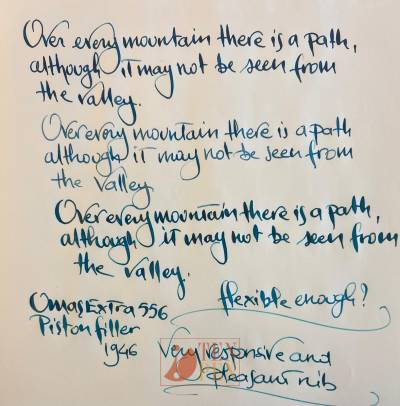 Over every mountain there is a path,
although it may not be seen from
the valley.
Over every mountain there is a path
although it may not be seen from
the valley.
Over every mountain there is a path,
although it may not be seen from
the valley.
Omas Extra 556 flexible enough?
Piston filler
1946 Very responsive and
pleasant nib